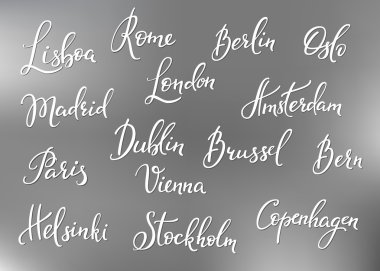 Lisboa Rome Berlin Oslo
London
Madrid Amsterdam
Dublin Brussel Bern
Paris
Vienna
Helsinki Stockholm Copenhagen